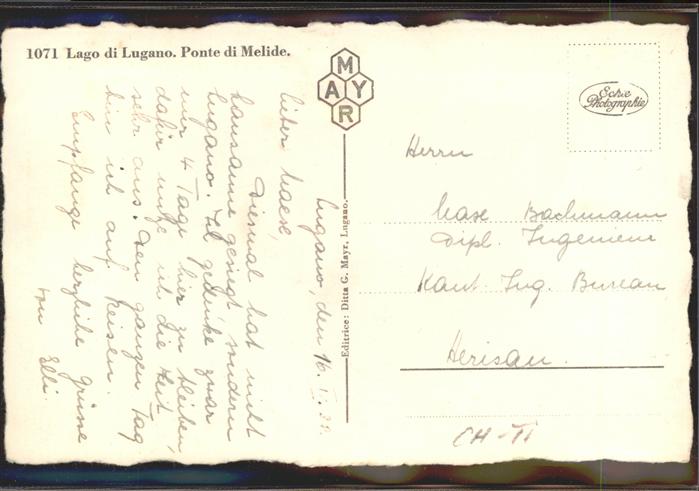 1071 Lago di Lugano. Ponte di Melide.
MAYR
Echte
Photographie
Editrice: Ditta G. Mayr, Lugano.
Lugano, den 16.
Lieber
Diesmal hat nicht
Lausanne gesiegt sondern
Lugano. Ich gedenke zwar
nur 4 Tage hier zu bleiben,
dafür nütze ich die Zeit
sehr aus. Den ganzen Tag
bin ich auf Reisen.
Empfange herzliche Grüsse
von Elli
Herrn
Bachmann
Dipl. Ingenieur
Kant. Ing. Bureau
Herisau.
CH-TI